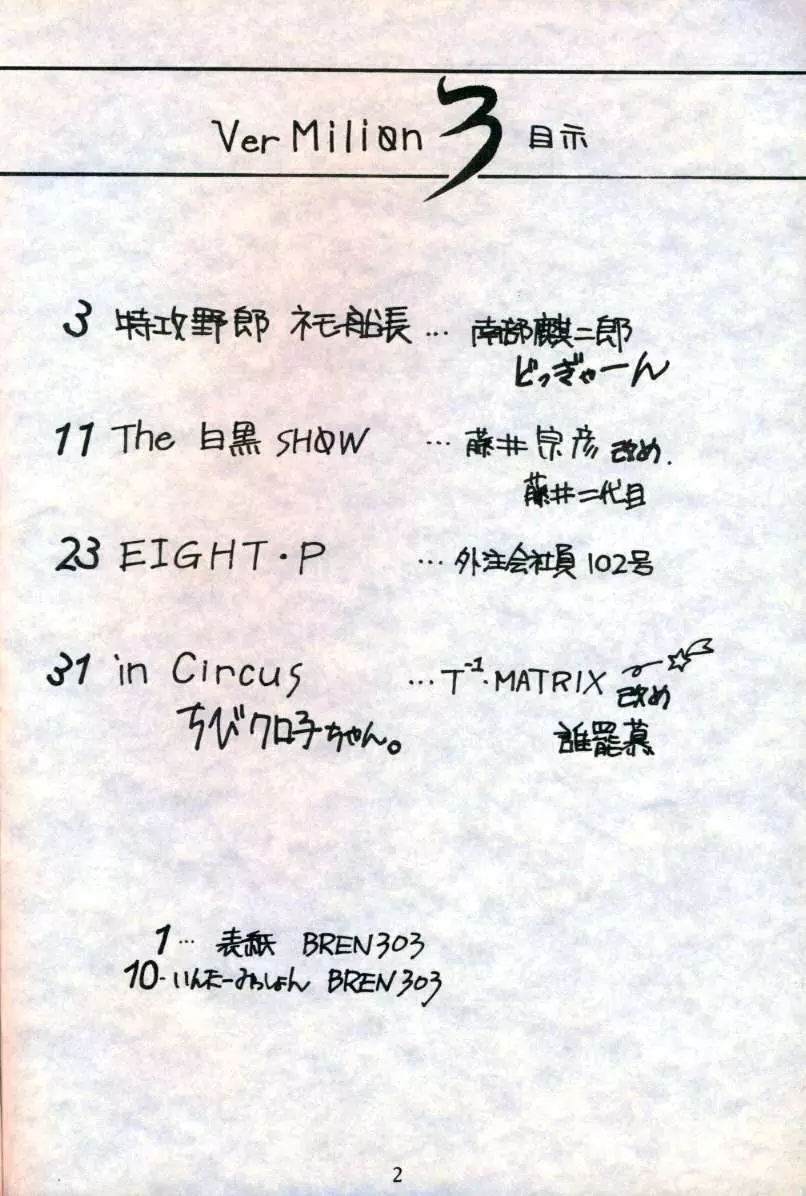 Ver Milion 3 目示
3 特攻野郎 ネモ船長 … 南部麒二郎
どっぎゃーん
11 The 白黒 SHOW … 藤井宗彦 改め.
藤井二代目
23 EIGHT・P … 外注会社員 102号
31 in Circus … T⁻¹・MATRIX 改め
ちびクロ子ちゃん。 誰罷慕
1… 表紙 BREN303
10・いんたーみっしょん BREN303
2